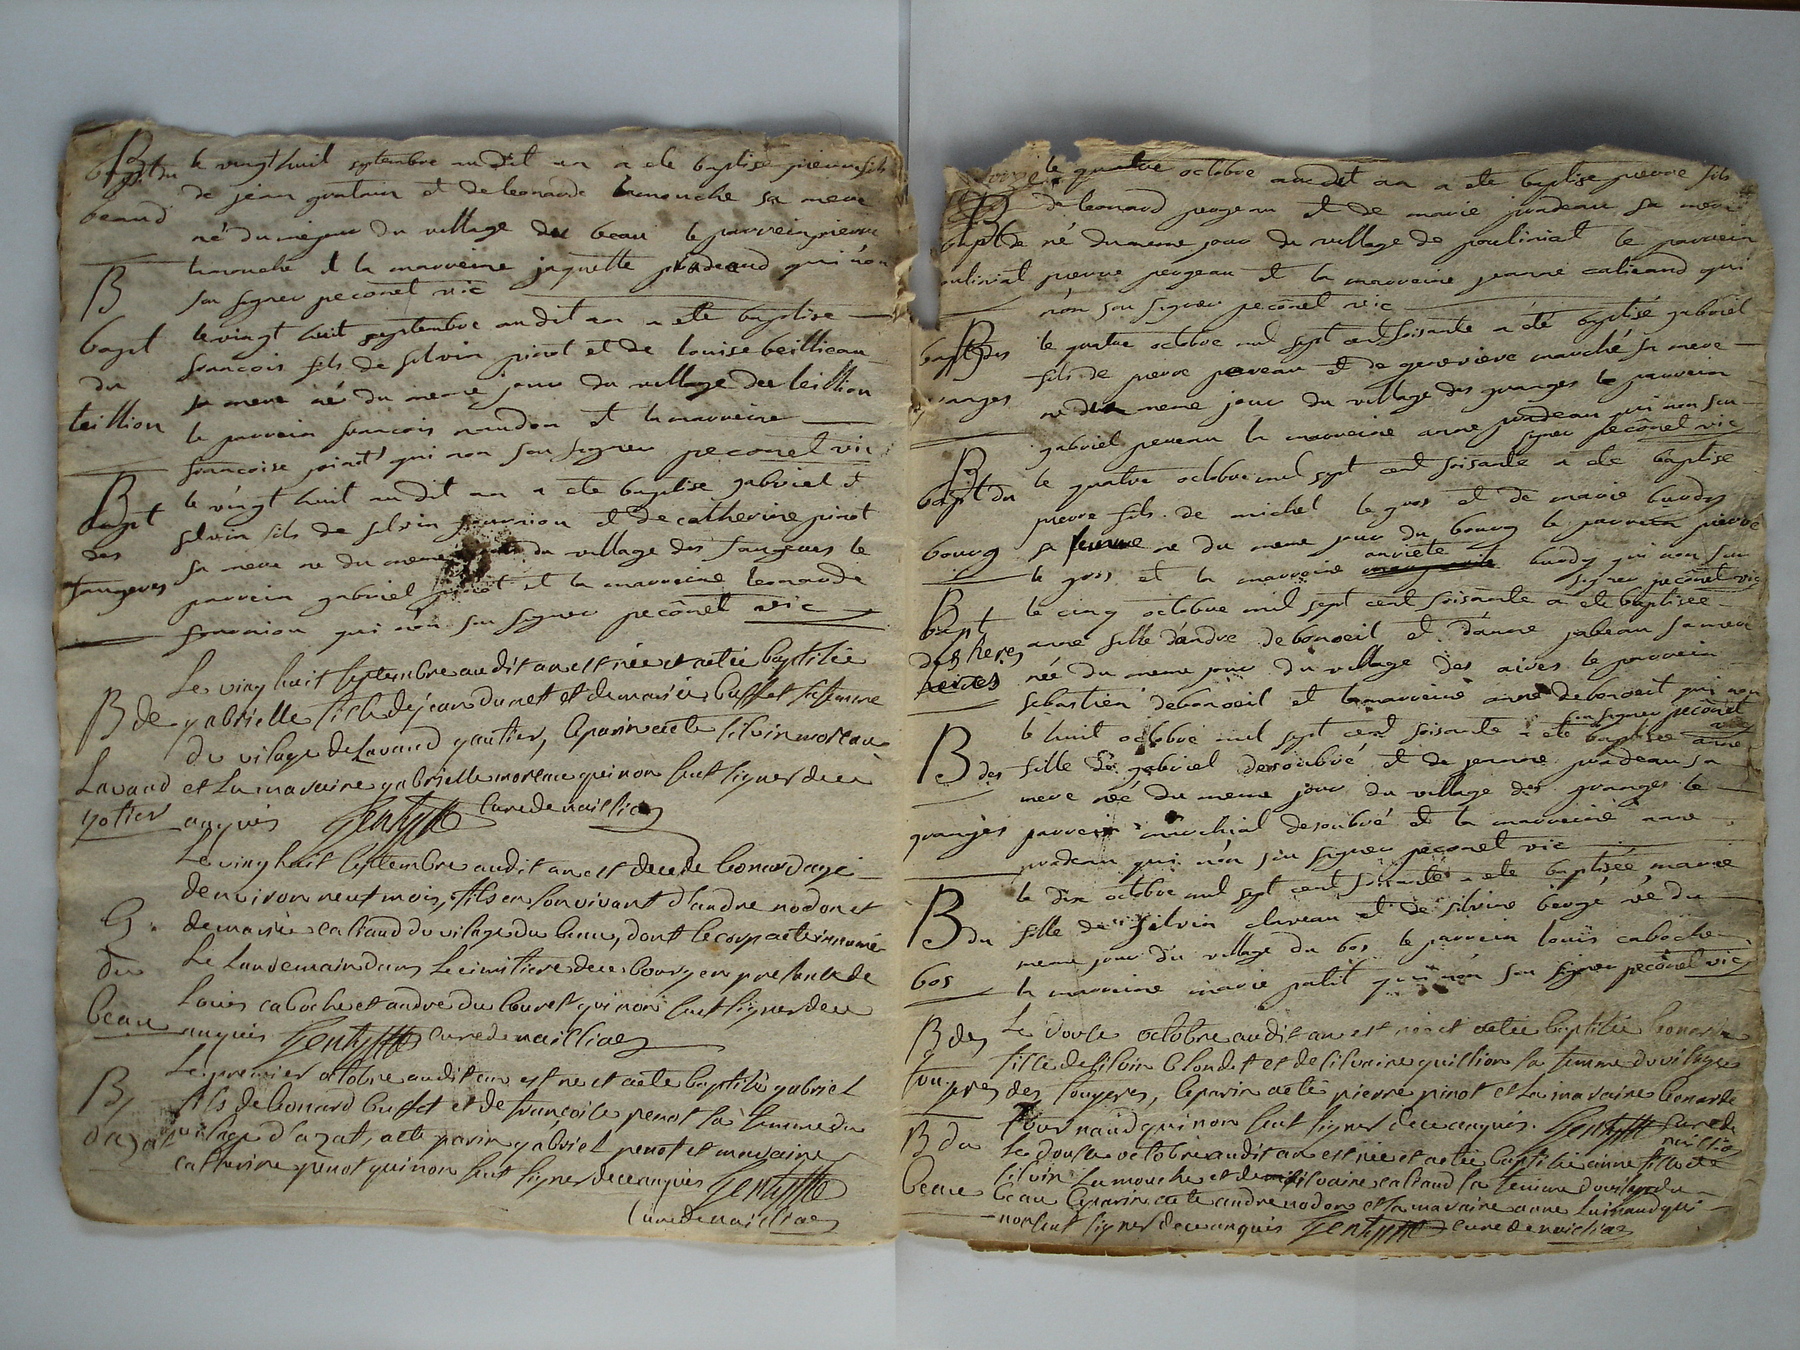 B
bapt du
beaud
le vingt huit septembre audit an a ete baptise pierre fils
de jean et de leonarde lamouche sa mere
né du mejour du village du beau le parrein pierre
lamouche et la marreine jaquette pradeaud qui non
su signer peconet vic
B
bapt
du
teillion
le vingt huit septembre audit an a ete baptise
françois fils de silvin pinot et de louise beillieau
sa mere né du meme jour du village du teillion
le parrein francois naudon et la marreine
francoise pinot qui non su signer peconet vic
B
bapt
des
fougeres
le vingt huit audit an a ete baptise gabriel et
silvin fils de silvin fournion et de catherine pinot
sa mere né du meme du village des fougeres le
parrein gabriel pinot et la marreine leonarde
fournion qui non su signer peconet vic
B de
Lavaud
gotier
Le vingt huit septembre audit an est née et a été baptisée
gabrielle fille de jean dunet et de marie buffet sa femme
du vilage de Lavaud gautier, le parin a ete silvin moreau
et La maraine gabrielle moreau qui non seut signer de ce
anquis Gentyfft Curé de naillia
G.
du
beau
Le vingt huit septembre audit an est decede leonard agé
denviron neuf mois, fils en son vivant d'andre nodon et
de marie catiaud du vilage du beau, dont le corp a ete innumé
Le Landemain dans Le cimitiere de ce bourg en presence de
Louis caboche et andre du louret qui non seut signer de ce
anquis Gentyfft curé de naillia
B
dazat
Le premier octobre audit an est ne et a ete baptisé gabriel
fils de leonard buffet et de francoise penot sa femme du
vilage d'azat, a ete parin gabriel penot et maraine
catherine penot qui non seut signer de ce anquis Gentyfft
Curé de naillia
B
bapt de
poulinial
le quatre octobre audit an a ete baptise pierre fils
de leonard peygeau et de marie pradeau sa mere
né du meme jour du village de poulinial le parrein
pierre peugeau et la marreine jeanne catieaud qui
non su signer peconet vic
B
bapt des
granges
le quatre octobre mil sept cent soisante a été baptisé gabriel
fils de pierre peveau et de genevieve marché sa mere
né du meme jour du village des granges le parrein
gabriel peveau la marreine anne pradeau qui non su
signer peconet vic
B
bapt du
bourg
le quatre octobre mil sept cent soisante a ete baptise
pierre fils de michel le gros et de marie burdy
sa femme né du meme jour du bourg le parrein pierre
le gros et la marreine anriete burdy qui non su
signer peconet vic
B
bapt
des heres
le cinq octobre mil sept cent soisante a ete baptisee
anne fille d'andre debonoeil et d'anne jabeau sa mere
née du meme jour du village des aires le parrein
sebastien debonoeil et la marreine anne debonoeil qui non
su signer peconet
vic
B des
granges
le huit octobre mil sept cent soisante a ete baptisee anne
fille de gabriel desoubré et de jeanne pradeau sa
mere née du meme jour du village des granges le
parrein marchial desoubré et la marreine anne
pradeau qui non su signer peconet vic
B du
bos
le dix octobre mil sept cent soisante a ete baptisée marie
fille de silvin claveau et de silvine bergé née du
meme jour du village du bos le parrein louis caboche
la marreine marie patit qui non su signer peconet vic
B des
fougeres
Le douse octobre audit an est née et a été baptisée leonarde
fille de silvin blondet et de silvaine quillion sa femme du vilage
des fougeres, le parin a été pierre pinot et La maraine leonarde
fournaud qui non seut signer de ce anquis. Gentyfft curé de
naillia
B du
beau
Le douse octobre audit an est née et a été baptisée anne fille de
silvin Lamouche et de silvaine catiaud sa femme du vilage du
beau le parin a ete andre nodon et la maraine anne qui
non seut signer de ce anquis Gentyfft curé de naillia